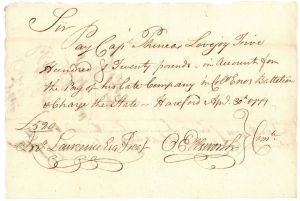 Sir
Pay Capt Phineas Lovejoy Five
Hundred & Twenty pounds – in Account for
the Pay of his late Company in Coll Enos Battalion
& Charge the State – Hartford Apl 30th 1777
£520
Jno Lawrence Esq Treasr O Ellsworth } Comte